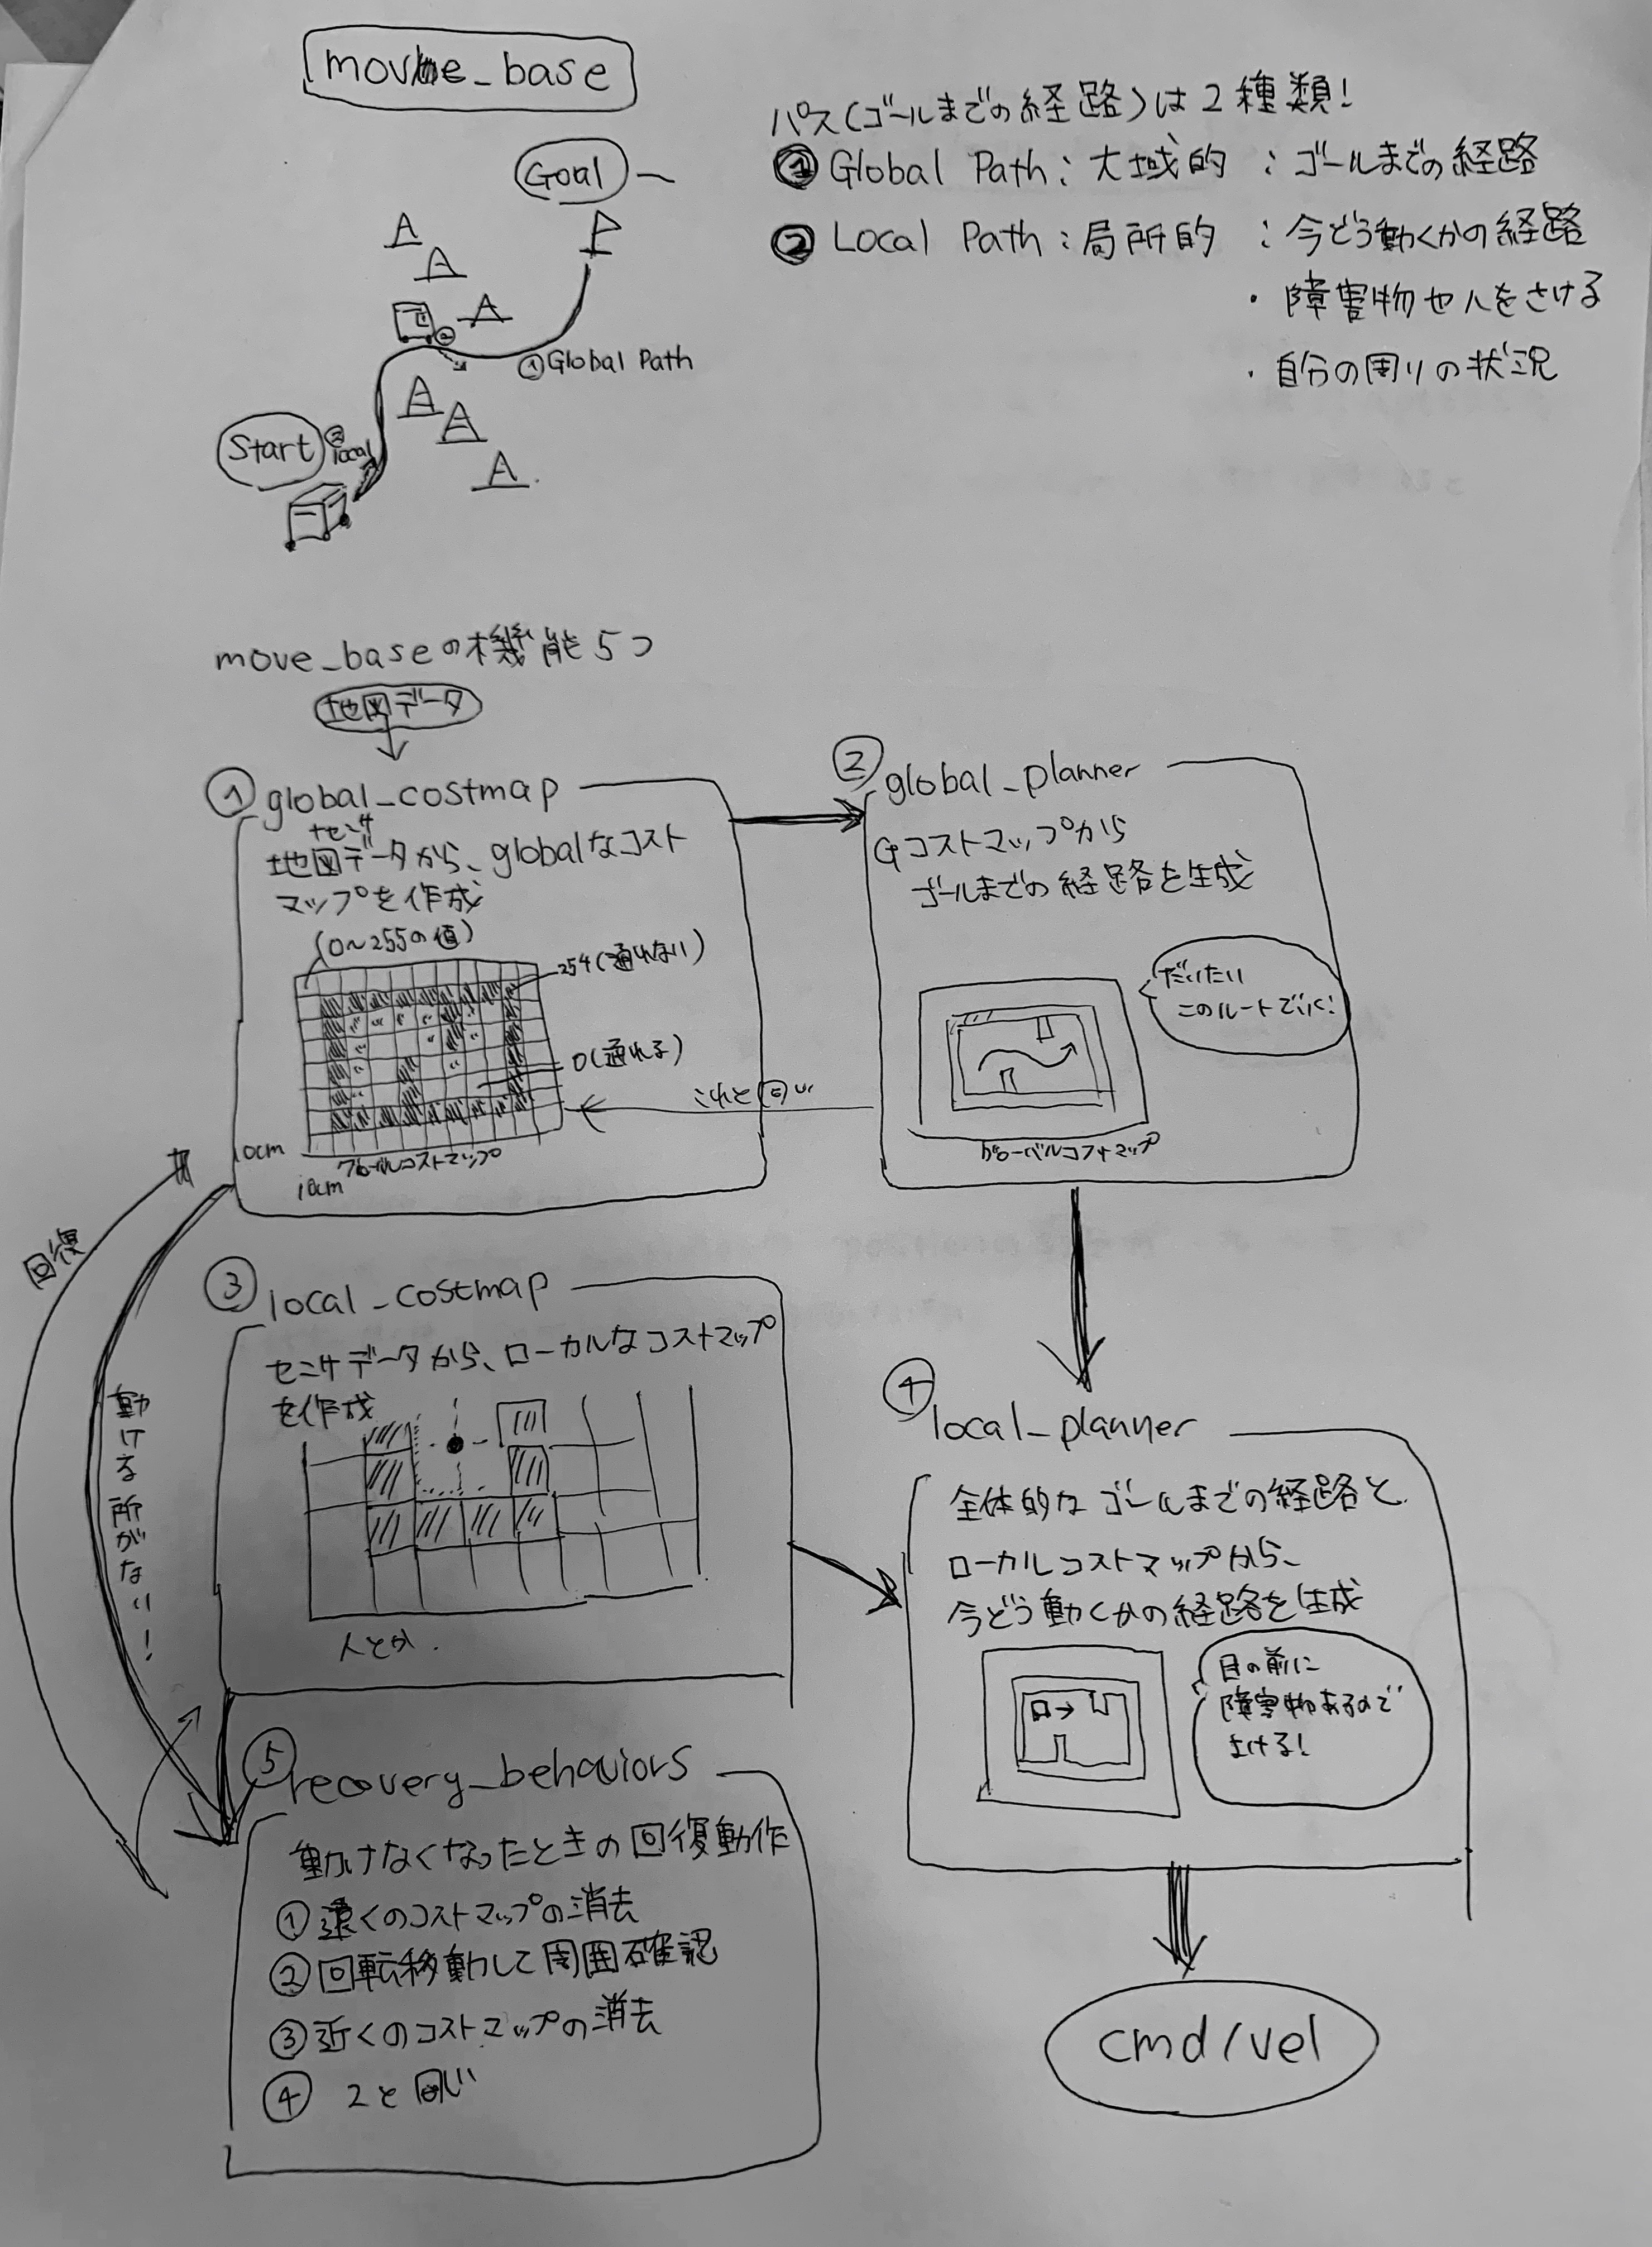 move_base
パス(ゴールまでの経路)は2種類!
① Global Path : 大域的 : ゴールまでの経路
② Local Path : 局所的 : 今どう動くかの経路
・障害物や人をさける
・自分の周りの状況
Goal
②
① Global Path
Start
② local
move_baseの機能5つ
地図データ
① global_costmap
+センサ
地図データから、globalなコスト
マップを作成
(0~255の値)
254(通れない)
0(通れる)
10cm
10cm
グローバルコストマップ
② global_planner
Gコストマップから
ゴールまでの経路を生成
だいたい
このルートでいく!
これと同じ
グローバルコストマップ
回復
動ける所がない!
③ local_costmap
センサデータから、ローカルなコストマップ
を作成
人とか.
④ local_planner
全体的なゴールまでの経路と
ローカルコストマップから、
今どう動くかの経路を生成
目の前に
障害物あるので
よける!
⑤ recovery_behaviors
動けなくなったときの回復動作
① 遠くのコストマップの消去
② 回転移動して周囲確認
③ 近くのコストマップの消去
④ 2と同じ
cmd/vel